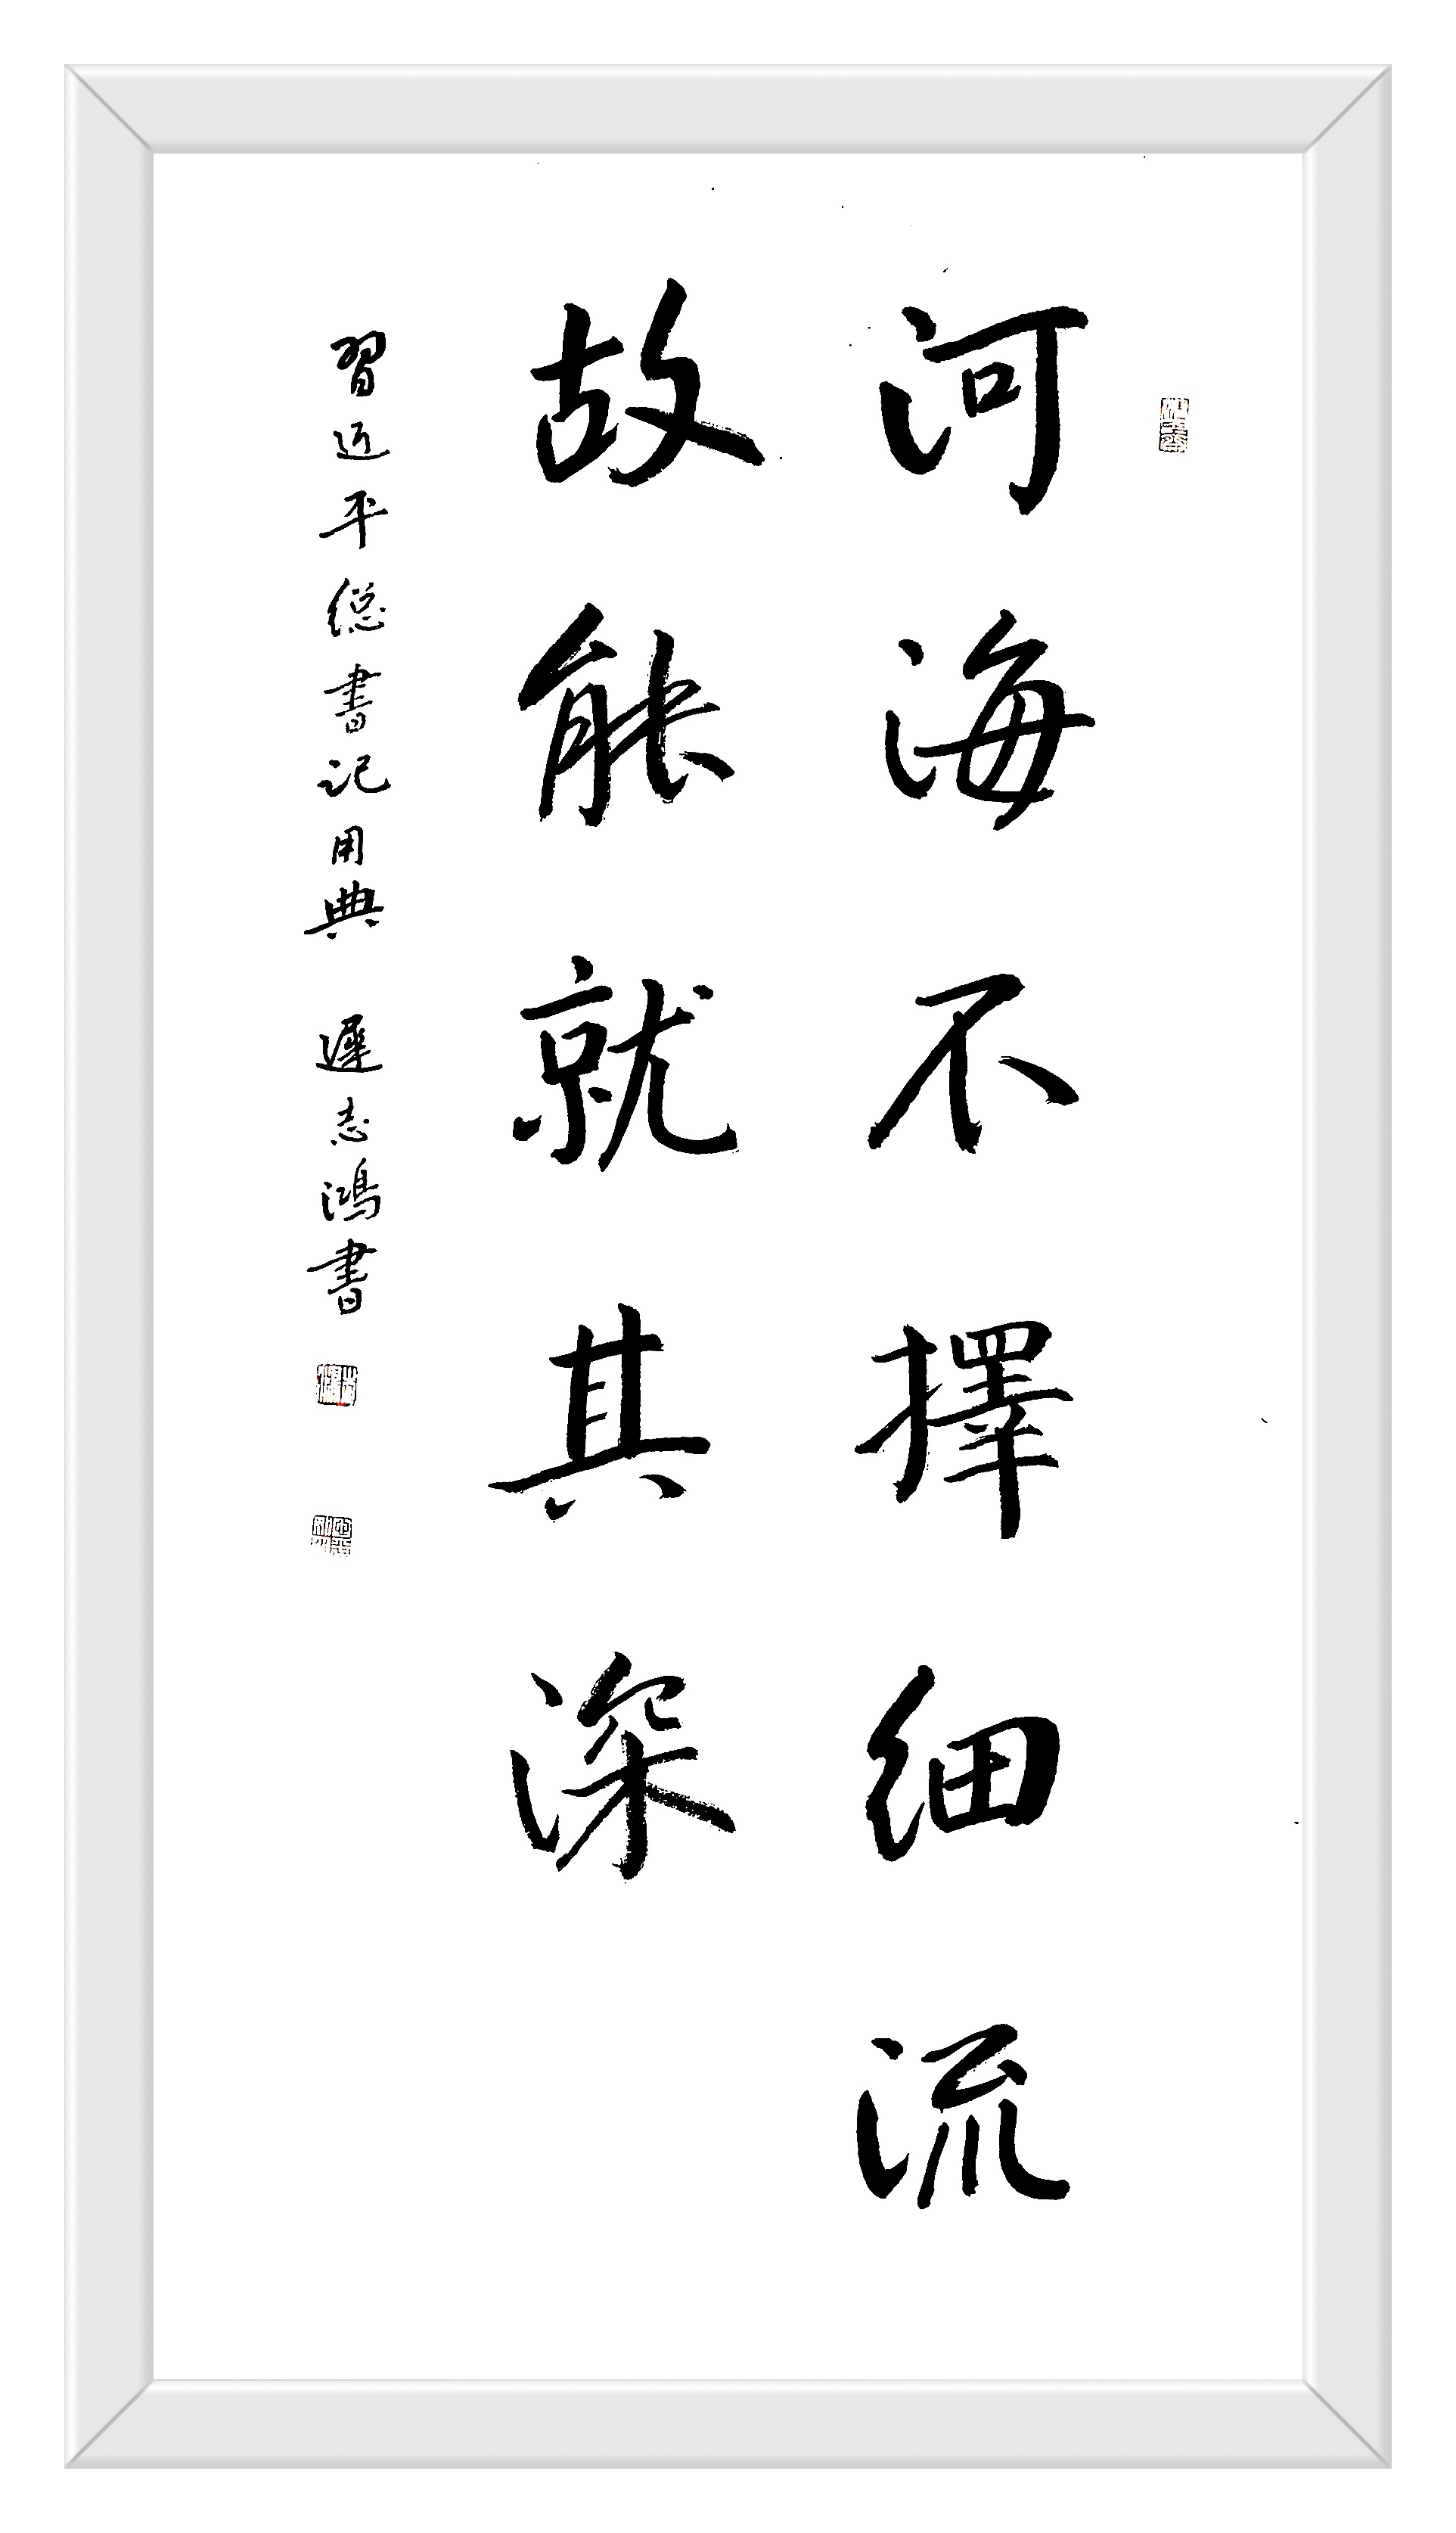 河海不擇細流
故能就其深
習近平總書記用典 遲志鴻書